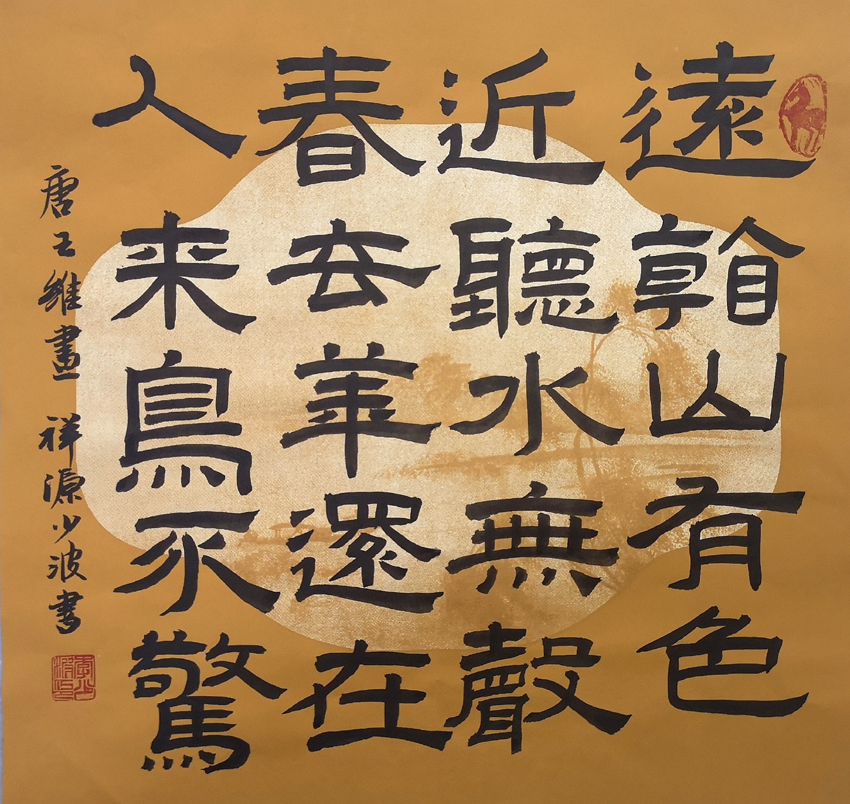 遠看山有色
近聽水無聲
春去華還在
人来鳥不驚
唐王維畫 祥源少波書